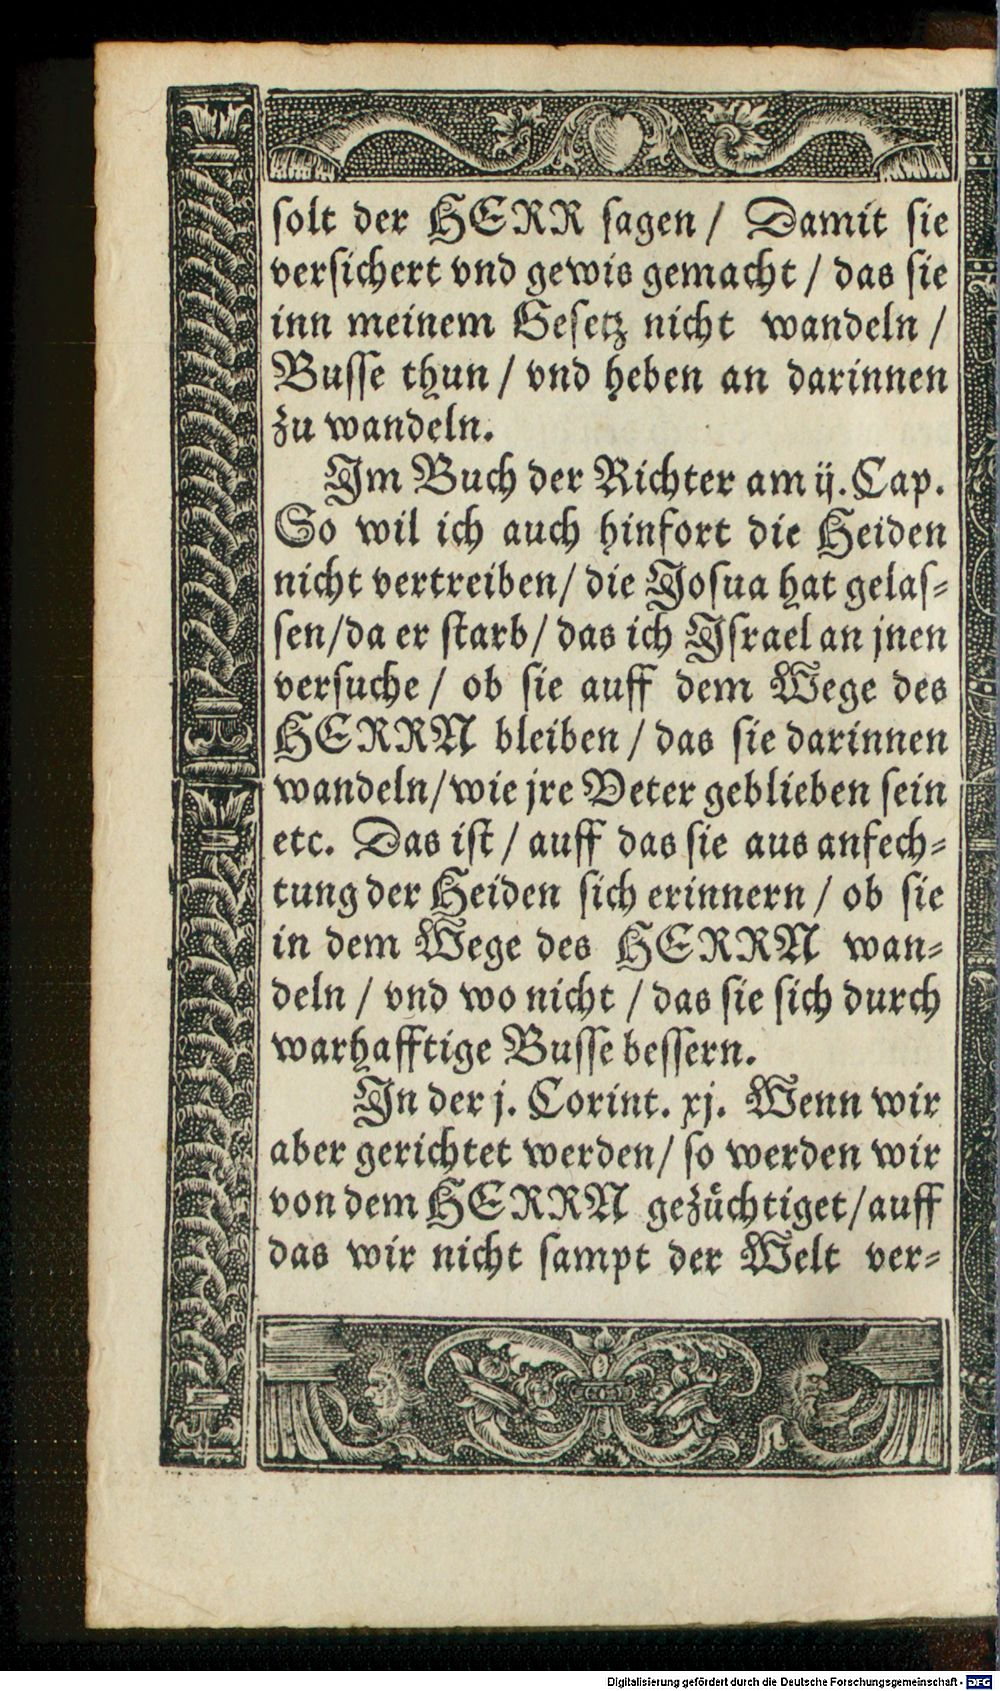 solt der HERR sagen / Damit sie
versichert vnd gewis gemacht / das sie
inn meinem Gesetz nicht wandeln /
Busse thun / vnd heben an darinnen
zu wandeln.
Im Buch der Richter am ij. Cap.
So wil ich auch hinfort die Heiden
nicht vertreiben / die Josua hat gelas-
sen / da er starb / das ich Israel an jnen
versuche / ob sie auff dem Wege des
HERRN bleiben / das sie darinnen
wandeln / wie jre Veter geblieben sein
etc. Das ist / auff das sie aus anfech-
tung der Heiden sich erinnern / ob sie
in dem Wege des HERRN wan-
deln / vnd wo nicht / das sie sich durch
warhafftige Busse bessern.
In der j. Corint. xj. Wenn wir
aber gerichtet werden / so werden wir
von dem HERRN gezüchtiget / auff
das wir nicht sampt der Welt ver-
Digitalisierung gefördert durch die Deutsche Forschungsgemeinschaft - DFG